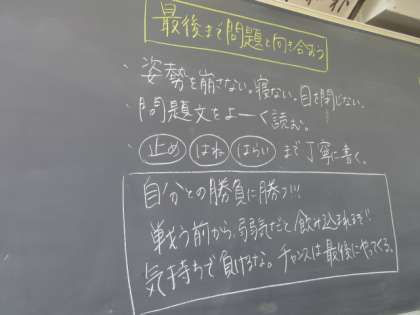 最後まで問題と向き合おう
・姿勢を崩さない。寝ない。目を閉じない。
・問題文をよーく読む。
・止め はね はらい まで丁寧に書く。
自分との勝負に勝つ!!!
戦う前から、弱気だと飲み込まれるぞ!
気持ちで負けるな。チャンスは最後にやってくる。